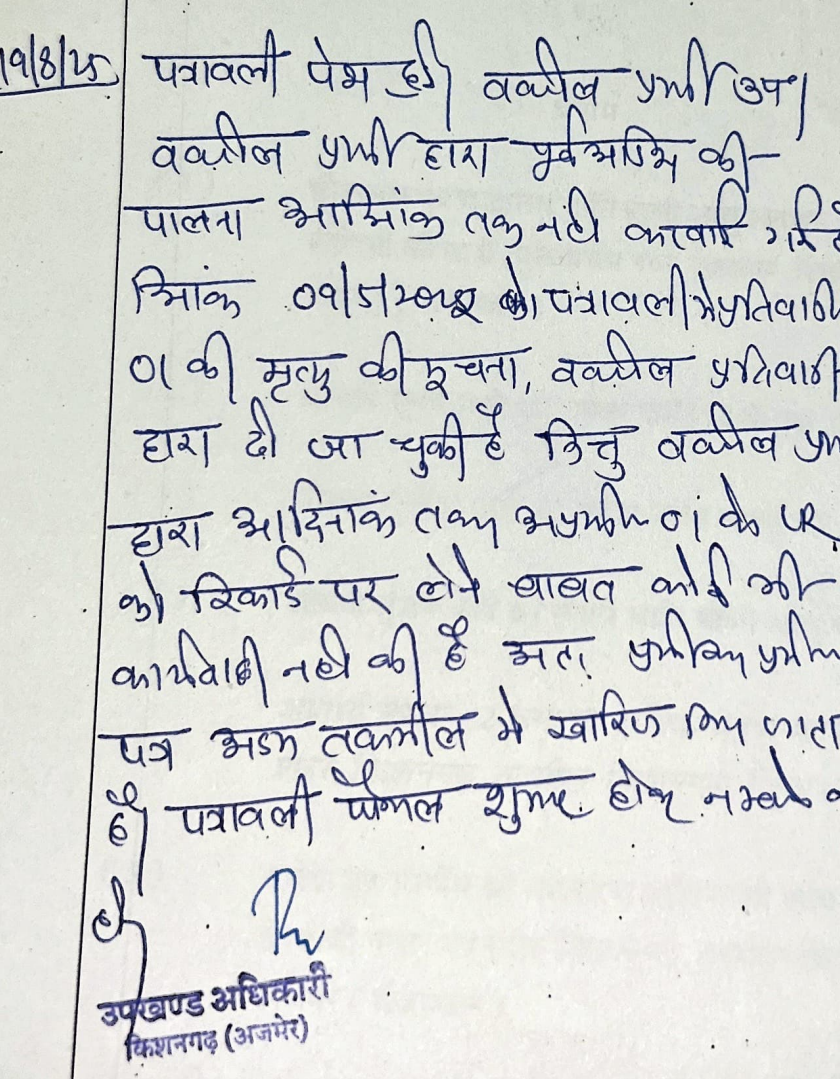 19/8/25 पत्रावली पेश हुई। वकील प्रार्थी उप।
वकील प्रार्थी द्वारा पूर्व की
पालना आदिनांक तक नही करवाई गई
दिनांक को पत्रावली मे प्रतिवादी
01 की मृत्यु की सूचना, वकील प्रतिवादी
द्वारा दी जा चुकी है किन्तु वकील
द्वारा आदिनांक तक अप्रार्थी 01 के LR
को रिकार्ड पर लेने बाबत कोई भी
कार्यवाही नही की है अतः प्रार्थी का
पत्र अदम तकमील मे खारिज किया जाता
है। पत्रावली फैसल शुमार होकर
उपखण्ड अधिकारी
किशनगढ़ (अजमेर)